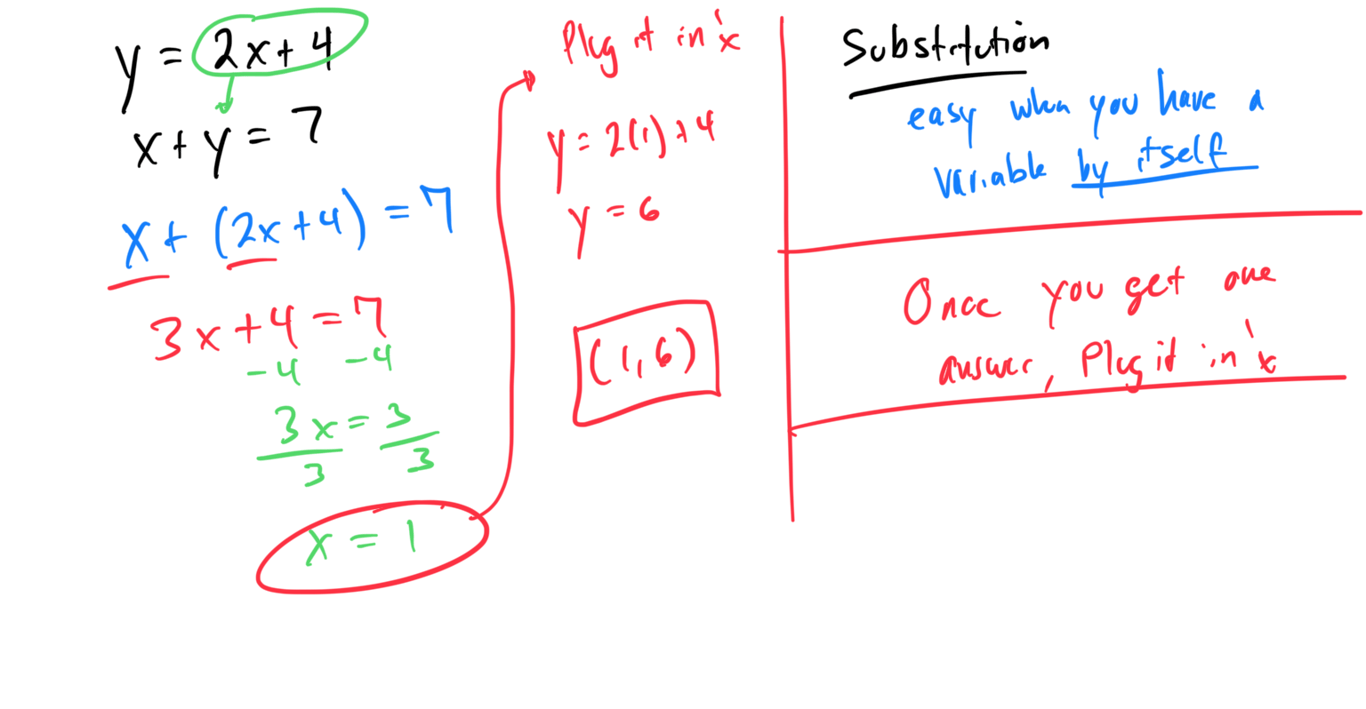 y = 2x+4
x + y = 7
x + (2x+4) = 7
3x+4 = 7
-4 -4
3x = 3
3 3
x = 1
Plug it in 'x
y = 2(1) + 4
y = 6
(1, 6)
Substitution
easy when you have a
variable by itself
Once you get one
answer, Plug it in 'x